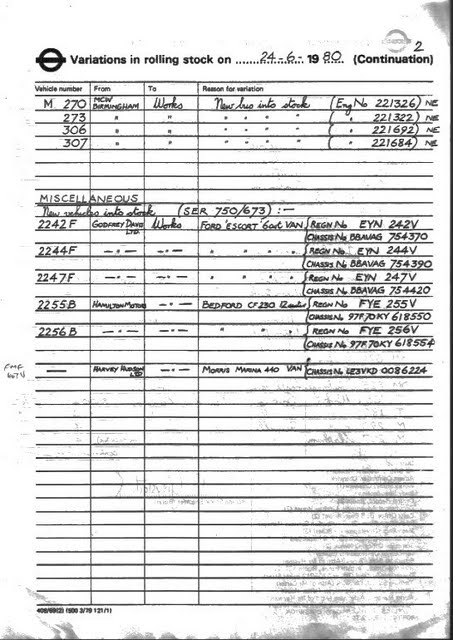 2
Variations in rolling stock on ........24-6-.. 1980.. (Continuation)
Vehicle number From To Reason for variation
M 270 MCW BIRMINGHAM Works New bus into stock (Eng No 221326) NE
273 " " " " " " ( " 221322) NE
306 " " " " " " ( " 221692) NE
307 " " " " " " ( " 221684) NE
MISCELLANEOUS
New vehicles into stock (SER 750/673) :-
2242F GODFREY DAVIS LTD Works FORD 'ESCORT' VAN REGN No EYN 242V
CHASSIS No BBAVAG 754370
2244F —"— —"— " " " REGN No EYN 244V
CHASSIS No BBAVAG 754390
2247F —"— —"— " " " REGN No EYN 247V
CHASSIS No BBAVAG 754420
2255B HAMILTON MOTORS —"— BEDFORD CF230 REGN No FYE 255V
CHASSIS No 97F70KY 618550
2256B —"— —"— " " " REGN No FYE 256V
CHASSIS No 97F70KY 618554
— HARVEY HUDSON LTD —"— MORRIS MARINA 440 VAN CHASSIS No LE3VKD 0086224
406/69(2) (500 3/79 121/1)